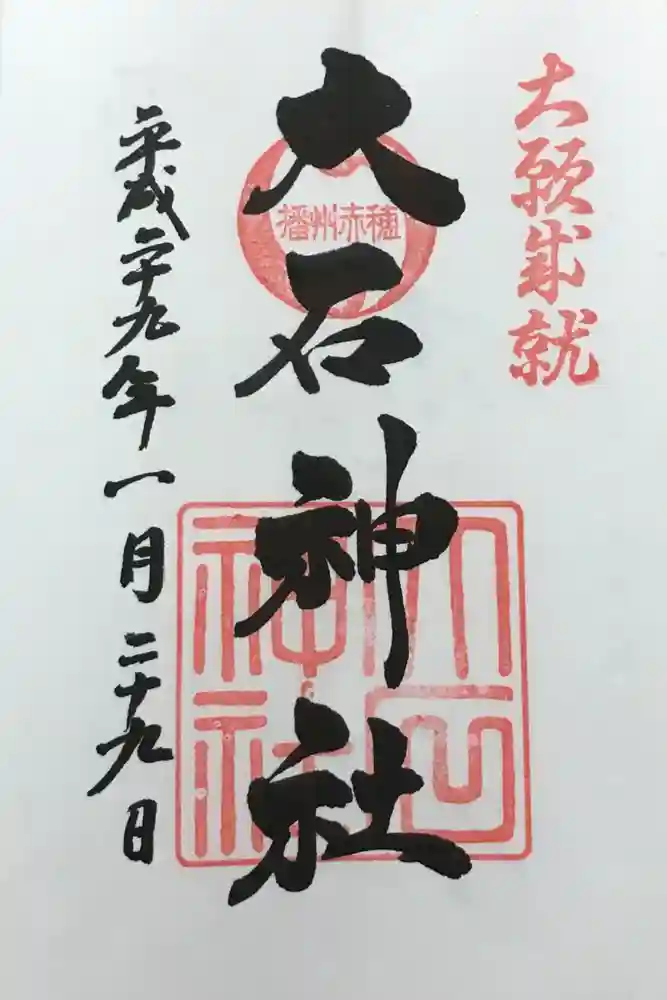 大願成就
大石神社
播州赤穂
大石神社
平成二十九年一月二十九日